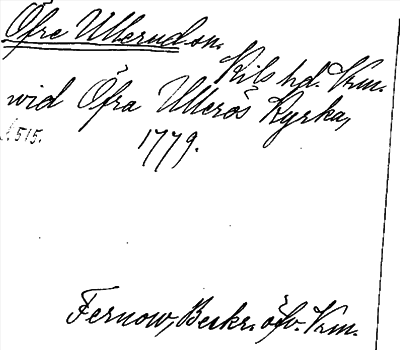 Öfre Ullerud sn.
Kils hd. Vrm.
wid Öfra Ullerös Kyrka,
S. 515.
1779.
Fernow, Beskr. öfv. Vrm.